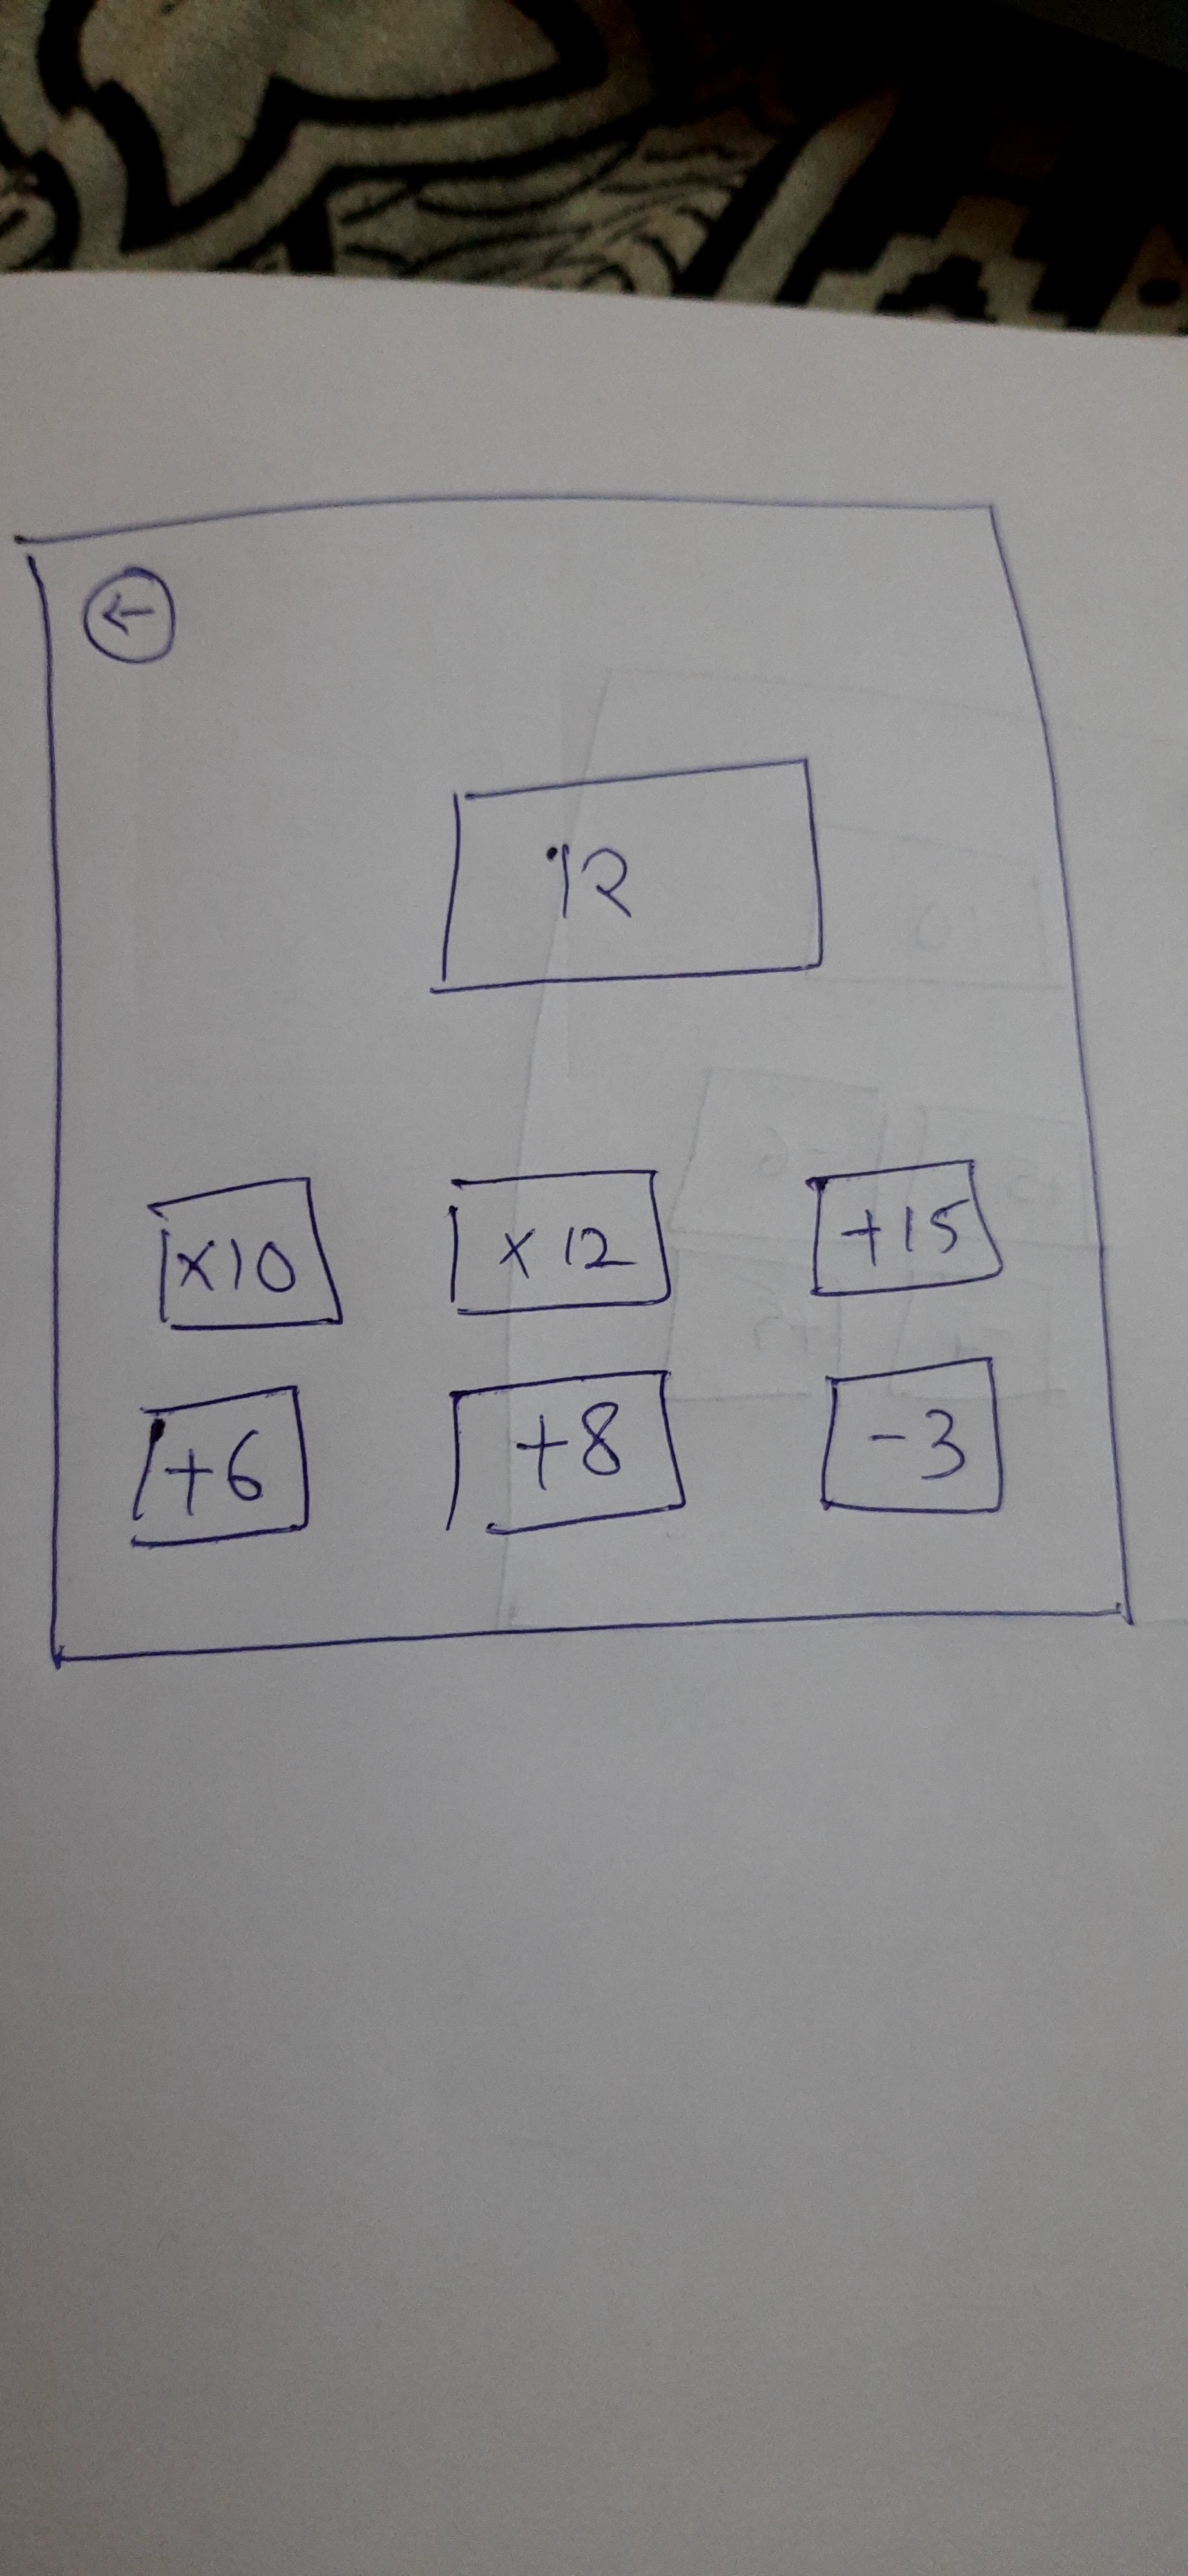 ←
12
x10 x12 +15
+6 +8 -3